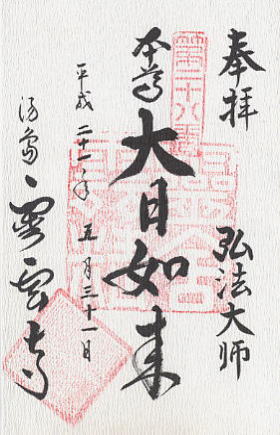 奉拝
弘法大師
第二十八番
本尊
大日如来
平成二十一年五月三十一日
湯島
霊雲寺